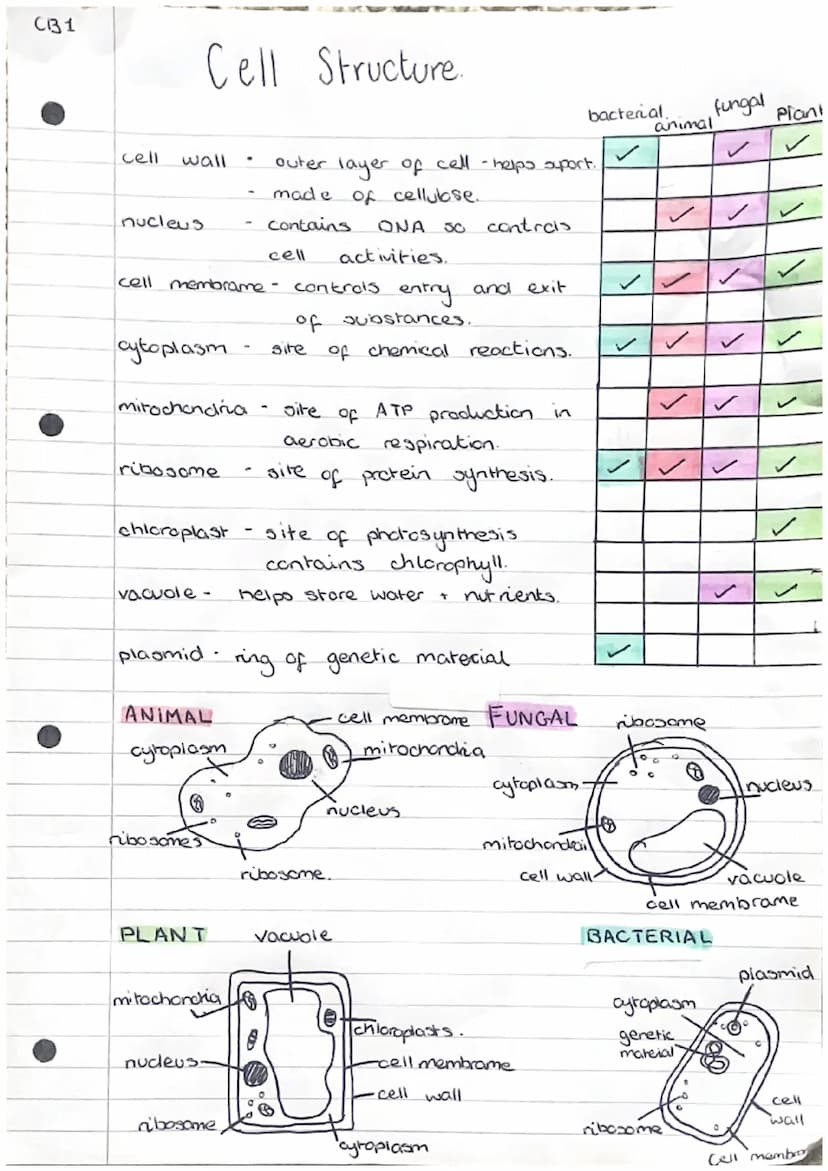 CB1
Cell Structure.
bacterial animal fungal Plant
cell wall • outer layer of cell - helps suport.
- made of cellulose.
nucleus - contains DNA so controls
cell activities.
cell membrane - controls entry and exit
of substances.
cytoplasm - site of chemical reactions.
mitochondria - site of ATP production in
aerobic respiration.
ribosome - site of protein synthesis.
chloroplast - site of photosynthesis
contains chlorophyll.
vacuole - helps store water + nutrients.
plasmid - ring of genetic material
ANIMAL
cell membrane
cytoplasm
mitochondria
nucleus
ribosomes
ribosome.
FUNGAL
ribosome
cytoplasm
nucleus
mitochondria
cell wall
vacuole
cell membrane
PLANT
vacuole
mitochondria
chloroplasts.
nucleus
cell membrane
cell wall
ribosome
cytoplasm
BACTERIAL
plasmid
cytoplasm
genetic
material
cell
wall
ribosome
cell membra